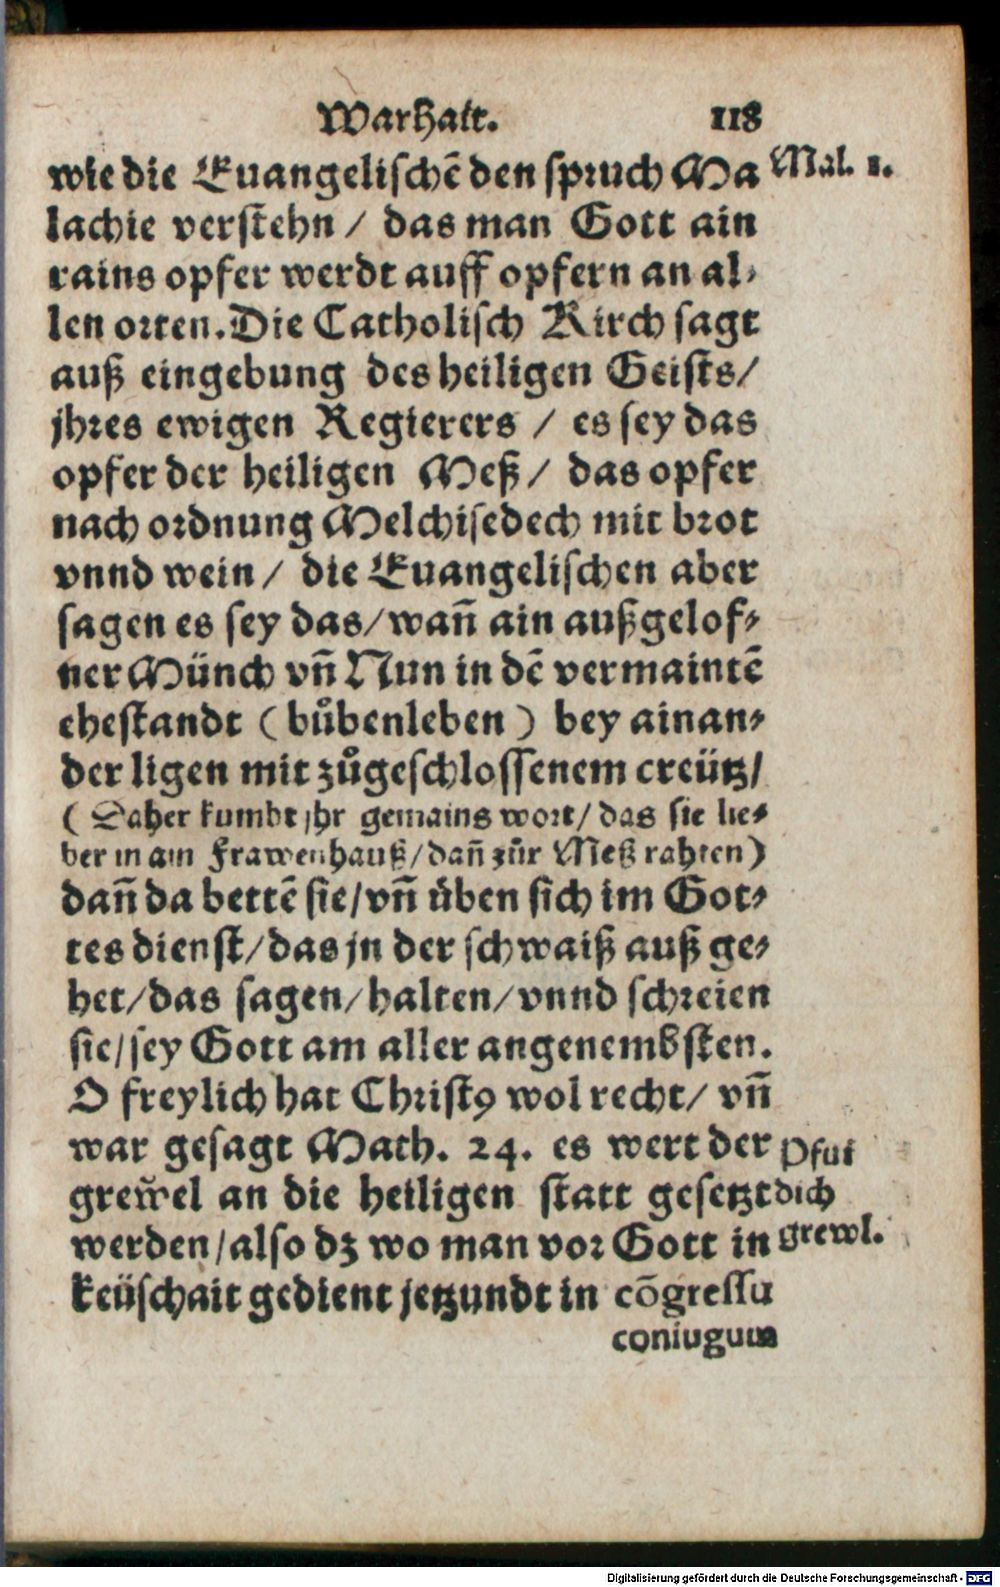 Warhait. 118
wie die Euangelischē den spruch Ma Mal. 1.
lachie verstehn / das man Gott ain
rains opfer werdt auff opfern an al⸗
len orten. Die Catholisch Kirch sagt
auß eingebung des heiligen Geists /
jhres ewigen Regierers / es sey das
opfer der heiligen Meß / das opfer
nach ordnung Melchisedech mit brot
vnnd wein / die Euangelischen aber
sagen es sey das / wañ ain außgelof⸗
ner Münch vñ Nun in dē vermaintē
ehestandt ( bůbenleben ) bey ainan⸗
der ligen mit zůgeschlossenem creütz /
( Daher kumbt jhr gemains wort / das sie lie⸗
ber in ain Frawenhauß / dañ zůr Meß rahten )
dañ da bettē sie / vñ üben sich im Got⸗
tes dienst / das jn der schwaiß auß ge⸗
het / das sagen / halten / vnnd schreien
sie / sey Gott am aller angenembsten.
O freylich hat Christꝰ wol recht / vñ
war gesagt Math. 24. es wert der Pfui
grewel an die heiligen statt gesetzt dich
werden / also dz wo man vor Gott in grewl.
keüschait gedient jetzundt in cōgressu
coniugum
Digitalisierung gefördert durch die Deutsche Forschungsgemeinschaft - DFG